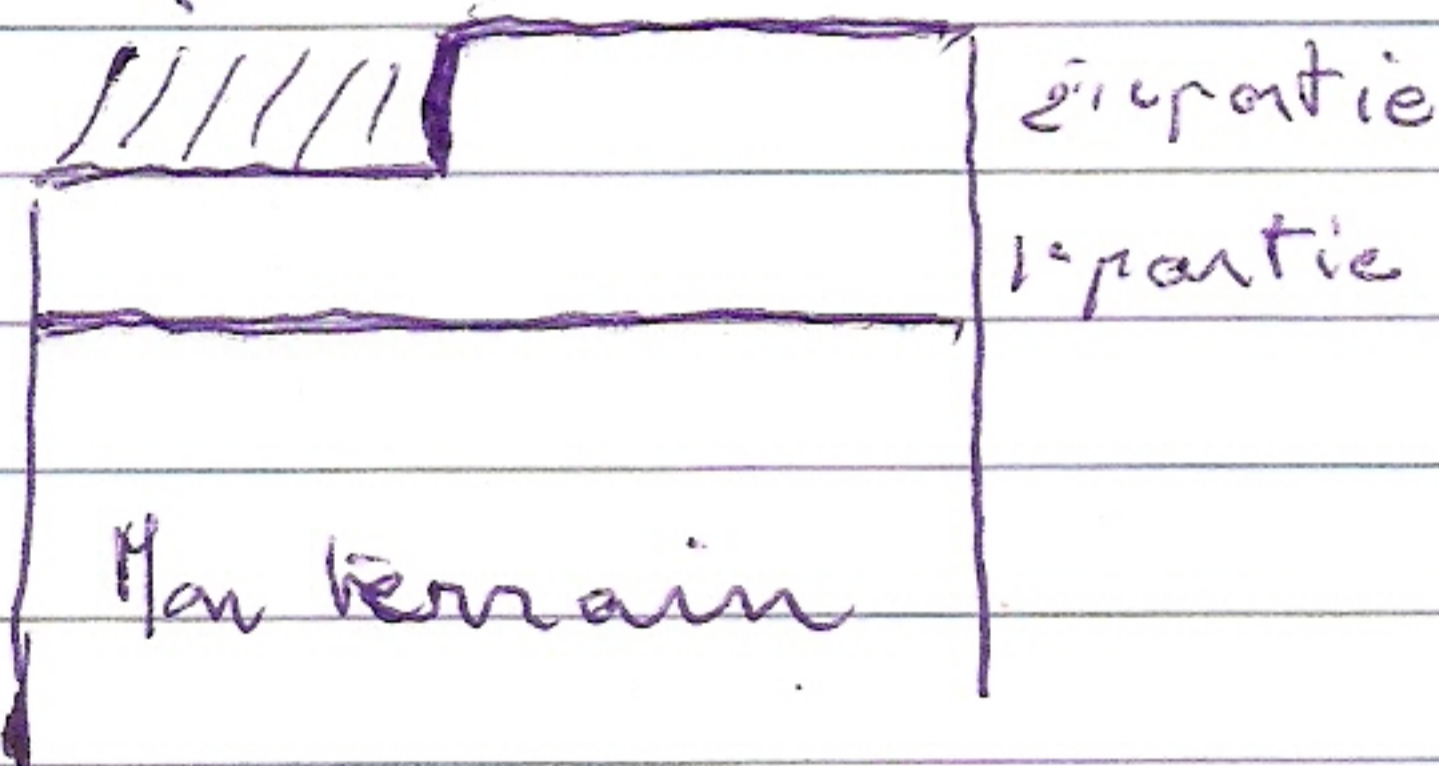 2ième partie
1e partie
Mon terrain